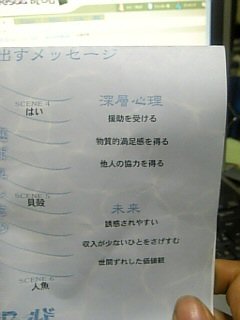 出すメッセージ
SCENE 4
はい
深層心理
援助を受ける
物質的満足感を得る
他人の協力を得る
SCENE 5
貝殻
未来
誘惑されやすい
収入が少ないひとをさげすむ
世間ずれした価値観
SCENE 6
人魚